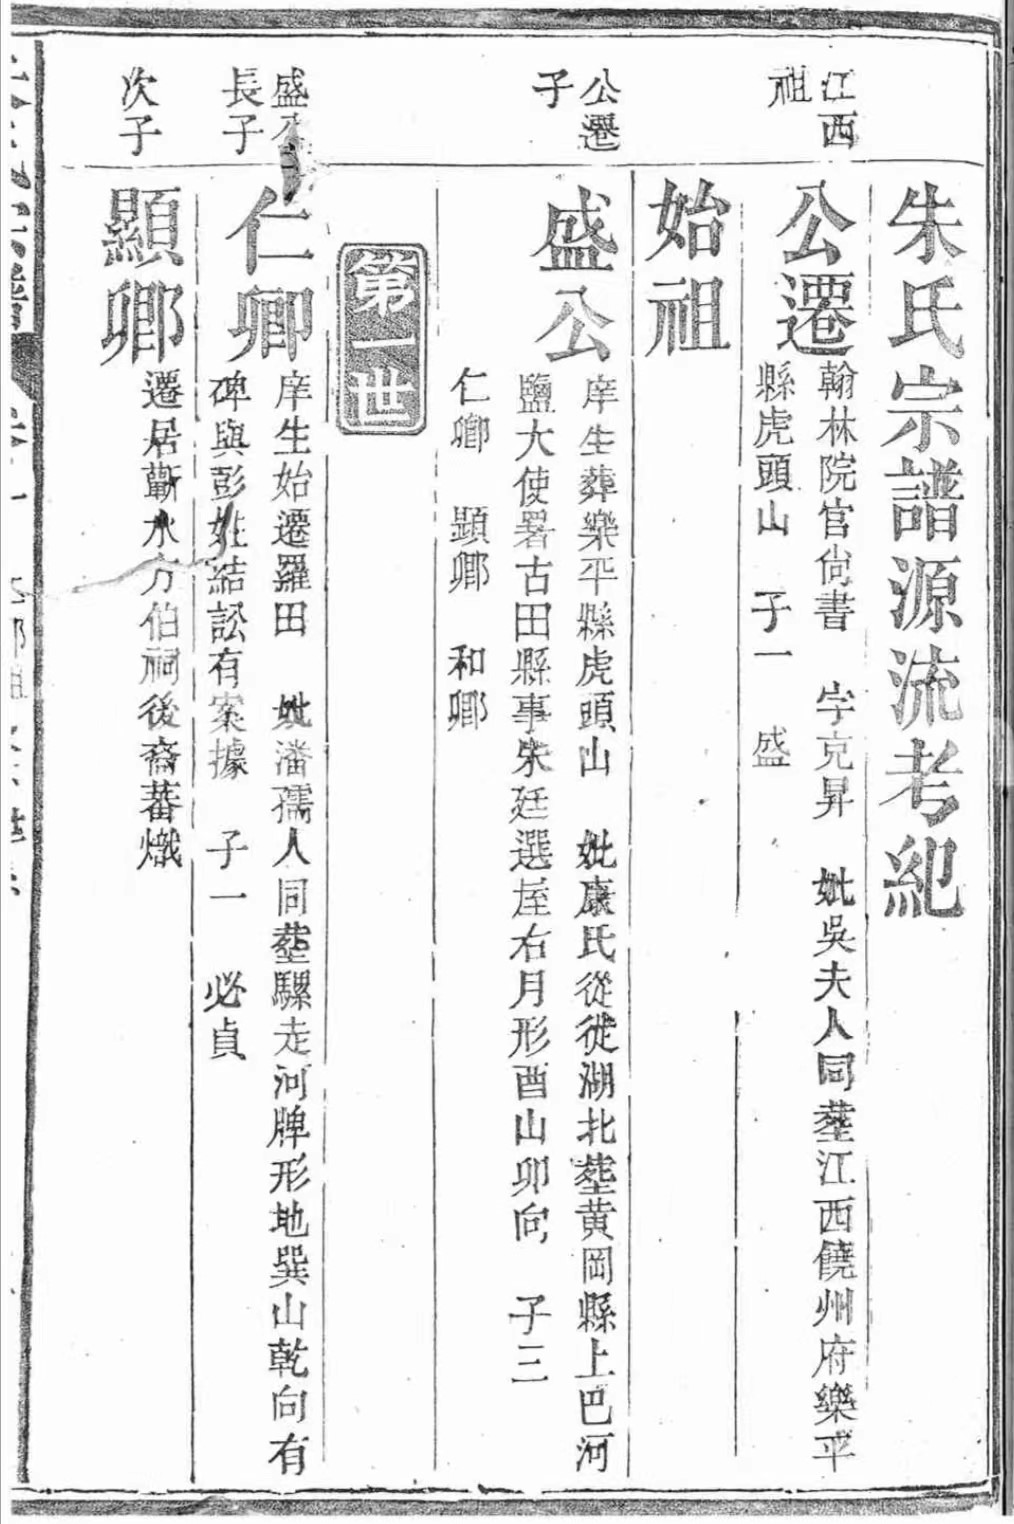 朱氏宗譜源流考紀
江西
祖
公遷
翰林院官尙書 字克昇 妣吳夫人同塟江西饒州府樂平
縣虎頭山 子一 盛
始祖
公遷
子
盛公
庠生葬樂平縣虎頭山 妣康氏從徙湖北塟黄岡縣上巴河
鹽大使署古田縣事朱廷選屋右月形酉山卯向 子三
仁卿 顕卿 和卿
第一世
盛公
長子
仁卿
庠生始遷羅田 妣潘孺人同塟騾走河牌形地巽山乾向有
碑與彭姓結訟有案據 子一 必貞
次子
顯卿
遷居蘄水方伯祠後裔蕃熾